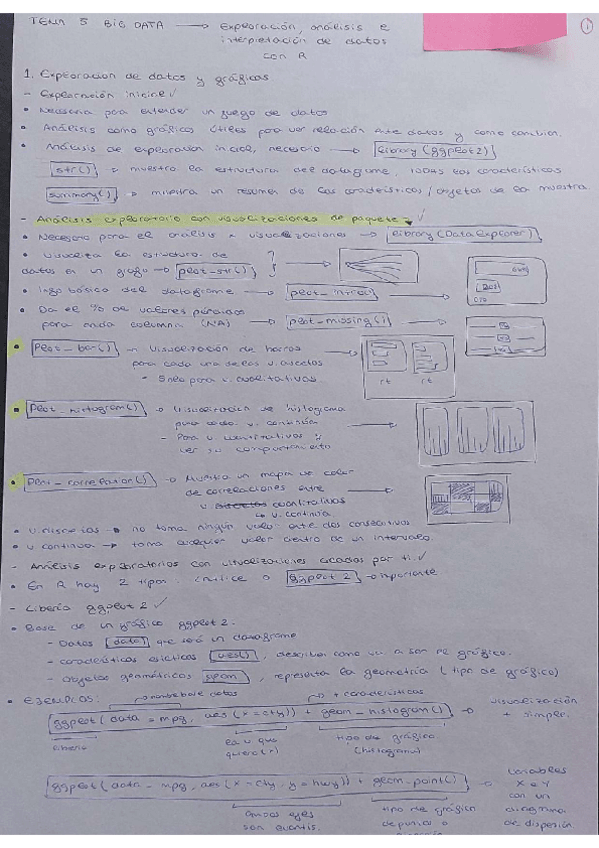 TEMA 5 BIG DATA → Exploración, análisis e
interpretación de datos
con R
1
1. Exploración de datos y gráficos
- Exploración inicial ✓
• Necesaria para entender un juego de datos
• Análisis como gráficos útiles para ver relación entre datos y como cambian.
• Análisis de exploración inicial, necesario → library(ggplot2)
str() → muestra la estructura del dataframe, todas las características
summary() → muestra un resumen de las características/objetos se la muestra
- Análisis exploratorio con visualizaciones de paquete ✓
• Necesario para el análisis x visualizaciones → library(DataExplorer)
• Visualiza la estructura de
datos en un grafo → plot_str()
• Info básica del dataframe → plot_intro()
• Da el % de valores perdidos
para cada columna (NA) → plot_missing()
• plot_bar() → Visualización de barras
para cada una de las v. discretas
- Sólo para v. cualitativas
• plot_histogram() → Visualización de histograma
para cada v. continua
- Para v. cuantitativas y
ver su comportamiento
• plot_correlation() → Muestra un mapa de calor
de correlaciones entre
v. cuantitativas
v. continua
• v. discretas → no toma ningún valor entre dos consecutivos
• v. continua → toma cualquier valor dentro de un intervalo.
- Análisis exploratorios con visualizaciones creadas por ti ✓
• En R hay 2 tipos: lattice o ggplot2 → importante
- Librería ggplot2 ✓
• Base de un gráfico ggplot2.
- Datos data que será un dataframe
- características estéticas aes(), describen como va a ser el gráfico.
- Objetos geométricos geom, representa la geometría (tipo de gráfico)
• EJEMPLOS: → nombre base datos → + características
ggplot(data = mpg, aes(x = cty)) + geom_histogram() → visualización
+ simple.
librería
la v. que
quiero (x)
tipo de gráfico
(histograma)
ggplot(data = mpg, aes(x = cty, y = hwy)) + geom_point() → variables
x e y
con un
diagrama
de dispersión.
ambos ejes
son cuantis.
tipo de gráfico
de puntos o